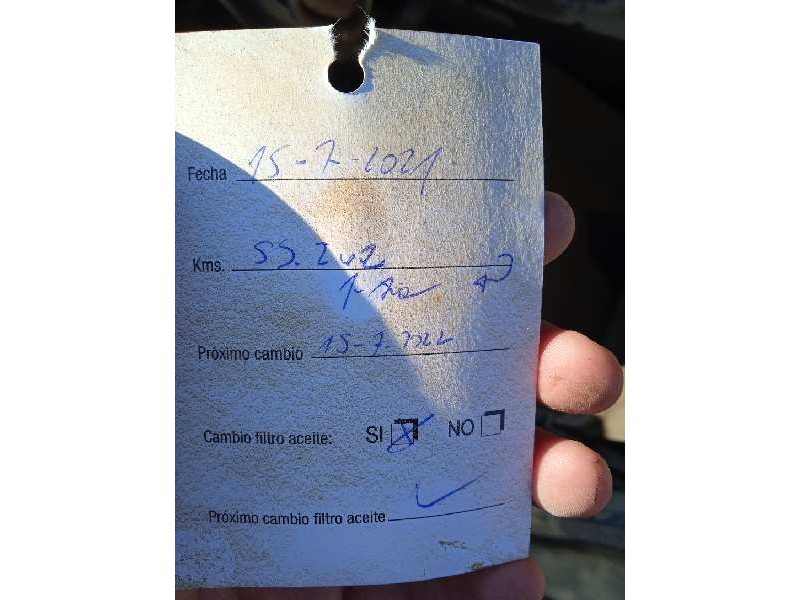 Fecha 15-7-2021
Kms. 55.242
1-Año
Próximo cambio 15-7-2022
Cambio filtro aceite: SI NO
Próximo cambio filtro aceite